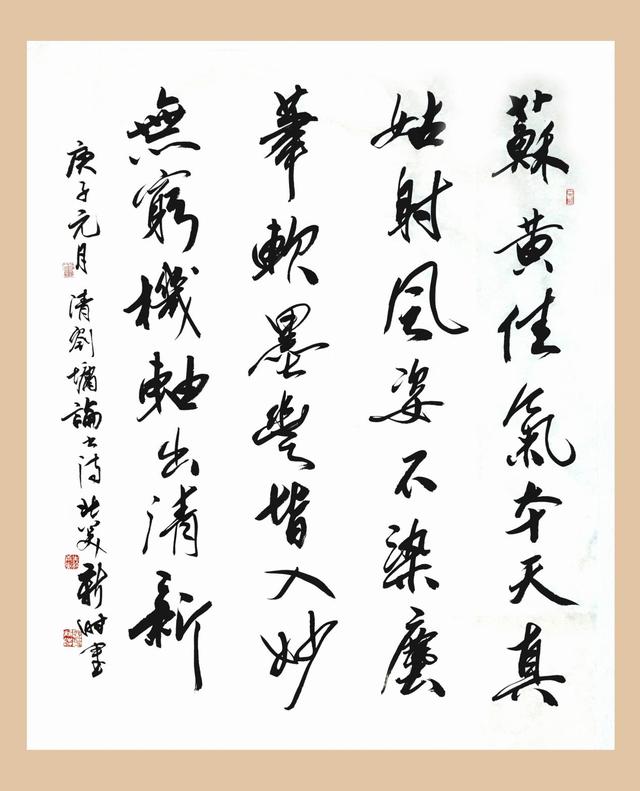 蘇黄佳氣本天真
姑射風姿不染塵
筆軟墨豐皆入妙
無窮機軸出清新
庚子元月 清劉墉論書詩 北美 書